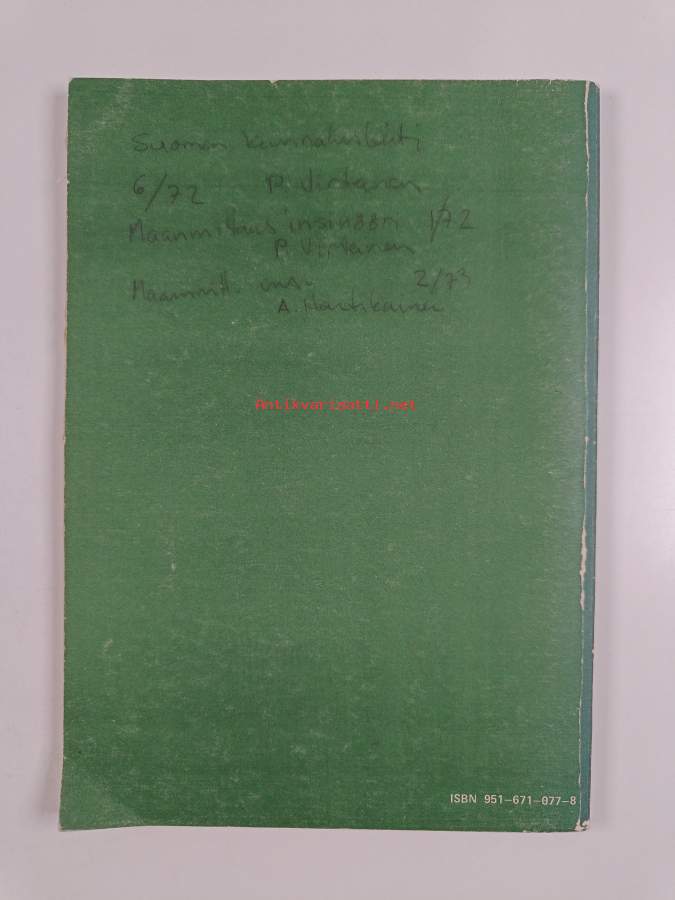 Suomen kunnallislehti
6/72 P. Virtanen
Maanmittausinsinööri 1/72
P. Virtanen
Maanmitt. ins. 2/73
A. Hartikainen
Antikvariaatti.net
ISBN 951-671-077-8